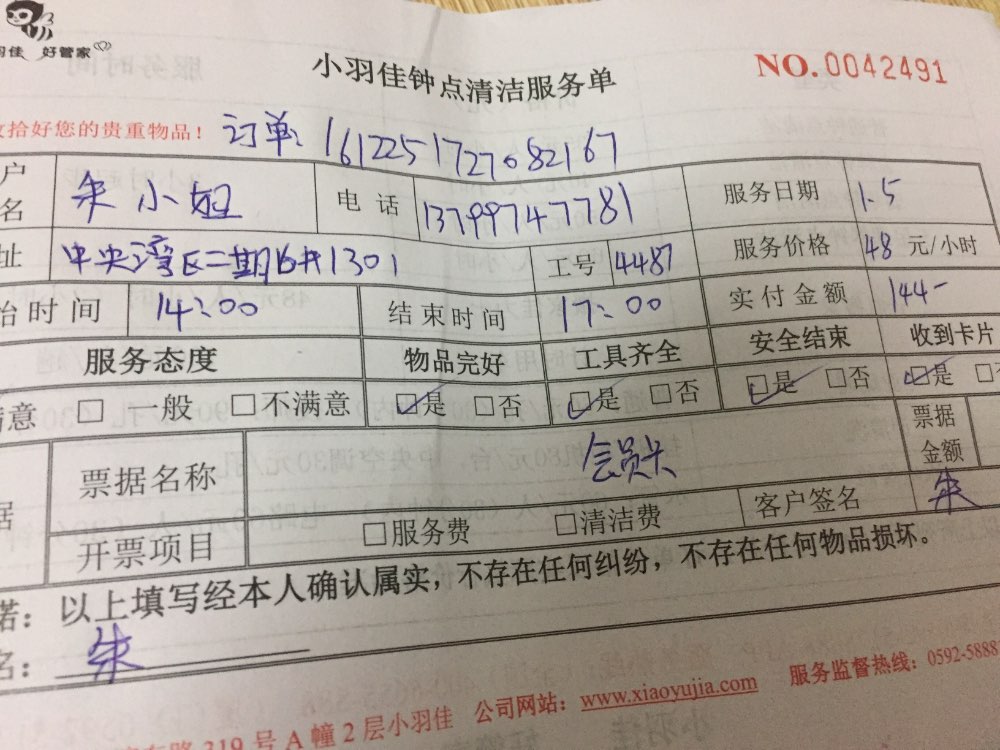 羽佳 好管家
小羽佳钟点清洁服务单
NO.0042491
拾好您的贵重物品！ 订单: 1612251727082167
户名 朱小姐 电话 13799747781 服务日期 1.5
址 中央湾区二期 1301 工号 4487 服务价格 48 元/小时
始时间 14:00 结束时间 17:00 实付金额 144-
服务态度 物品完好 工具齐全 安全结束 收到卡片
满意 □ 一般 □不满意 ☑是 □否 ☑是 □否 ☑是 □否 ☑是 □
据 票据名称 会员卡 票据金额
开票项目 □服务费 □清洁费 客户签名 朱
诺：以上填写经本人确认属实，不存在任何纠纷，不存在任何物品损坏。
名：朱
路319号A幢2层小羽佳 公司网站：www.xiaoyujia.com 服务监督热线：0592-5888